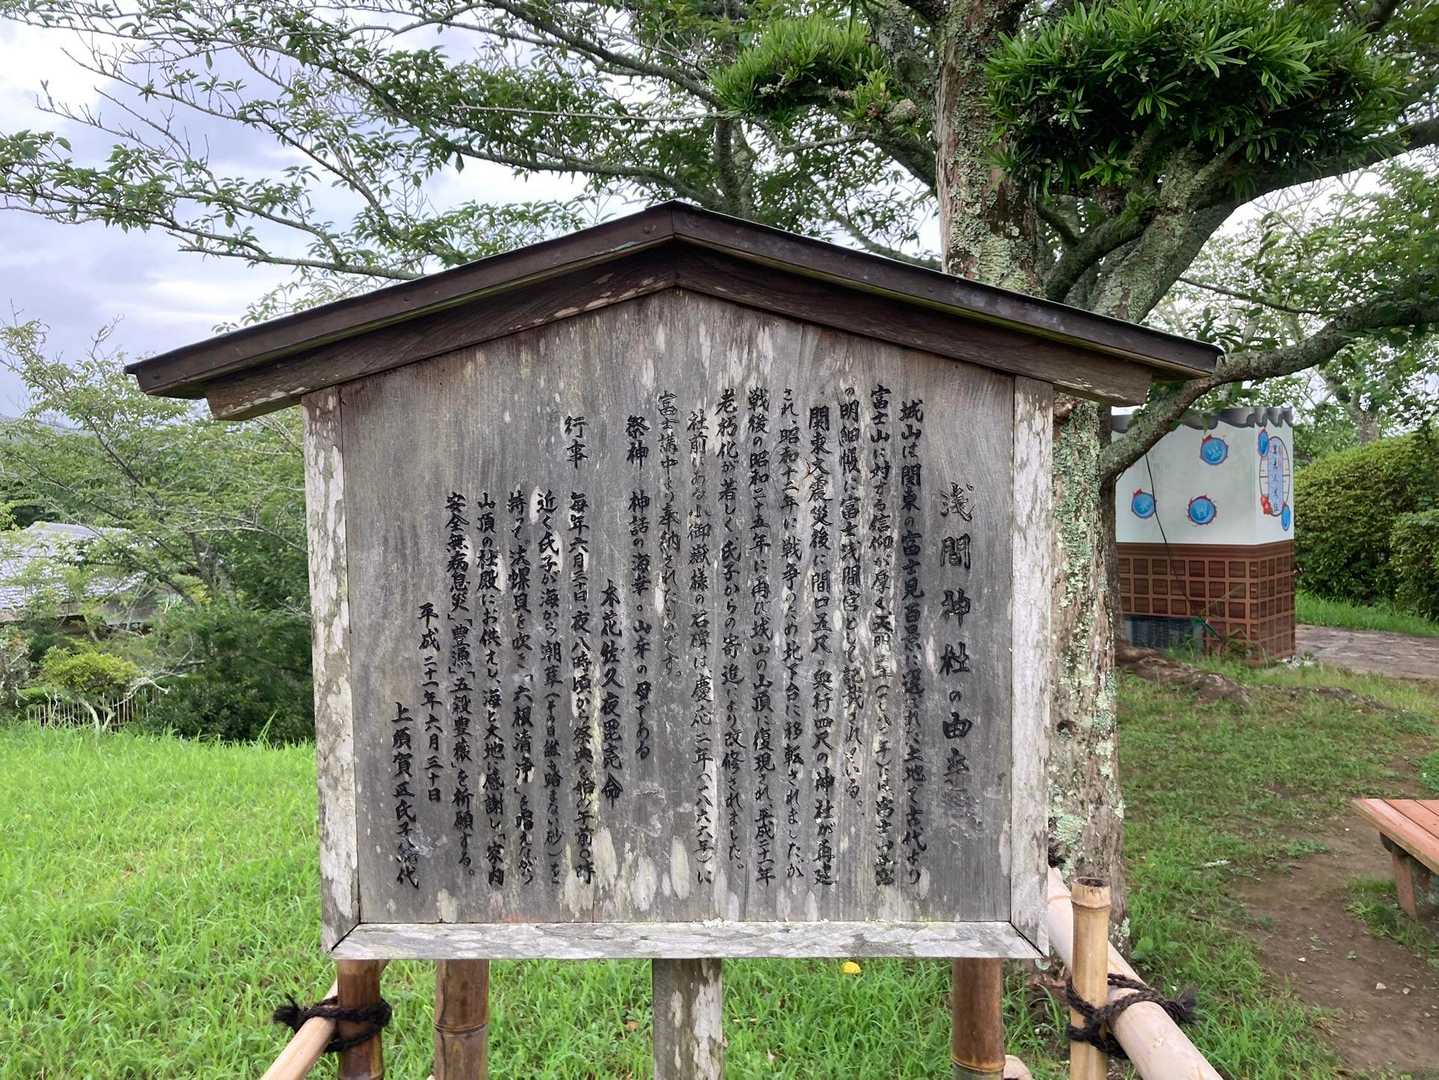 浅間神社の由来
城山は関東の富士見百景に選ばれた土地で古代より
富士山に対する信仰が厚く天明三年(一七八三年)には富士山宮
の明細帳に富士浅間宮として記載されている。
関東大震災後に間口五尺・奥行四尺の神社が再建
され、昭和十二年に戦争のため北下台に移転されましたが
戦後の昭和二十五年に再び城山の山頂に復現され、平成二十一年
老朽化が著しく氏子からの寄進により改修されました。
社前にある小御嶽様の石碑は、慶応二年(一八六六年)に
富士講中より奉納されたものです。
祭神 神話の海幸・山幸の母である
木花佐久夜毘売命
行事 毎年六月三十日夜八時頃から祭典を始め午前〇時
近く氏子が海から潮草(その日踏まない砂)を
持って法螺貝を吹き「六根清浄」を唱えながら
山頂の社殿にお供えし、海と大地に感謝し「家内
安全無病息災」「豊漁」「五穀豊穣」を祈願する。
平成二十一年六月三十日
上須賀区氏子総代